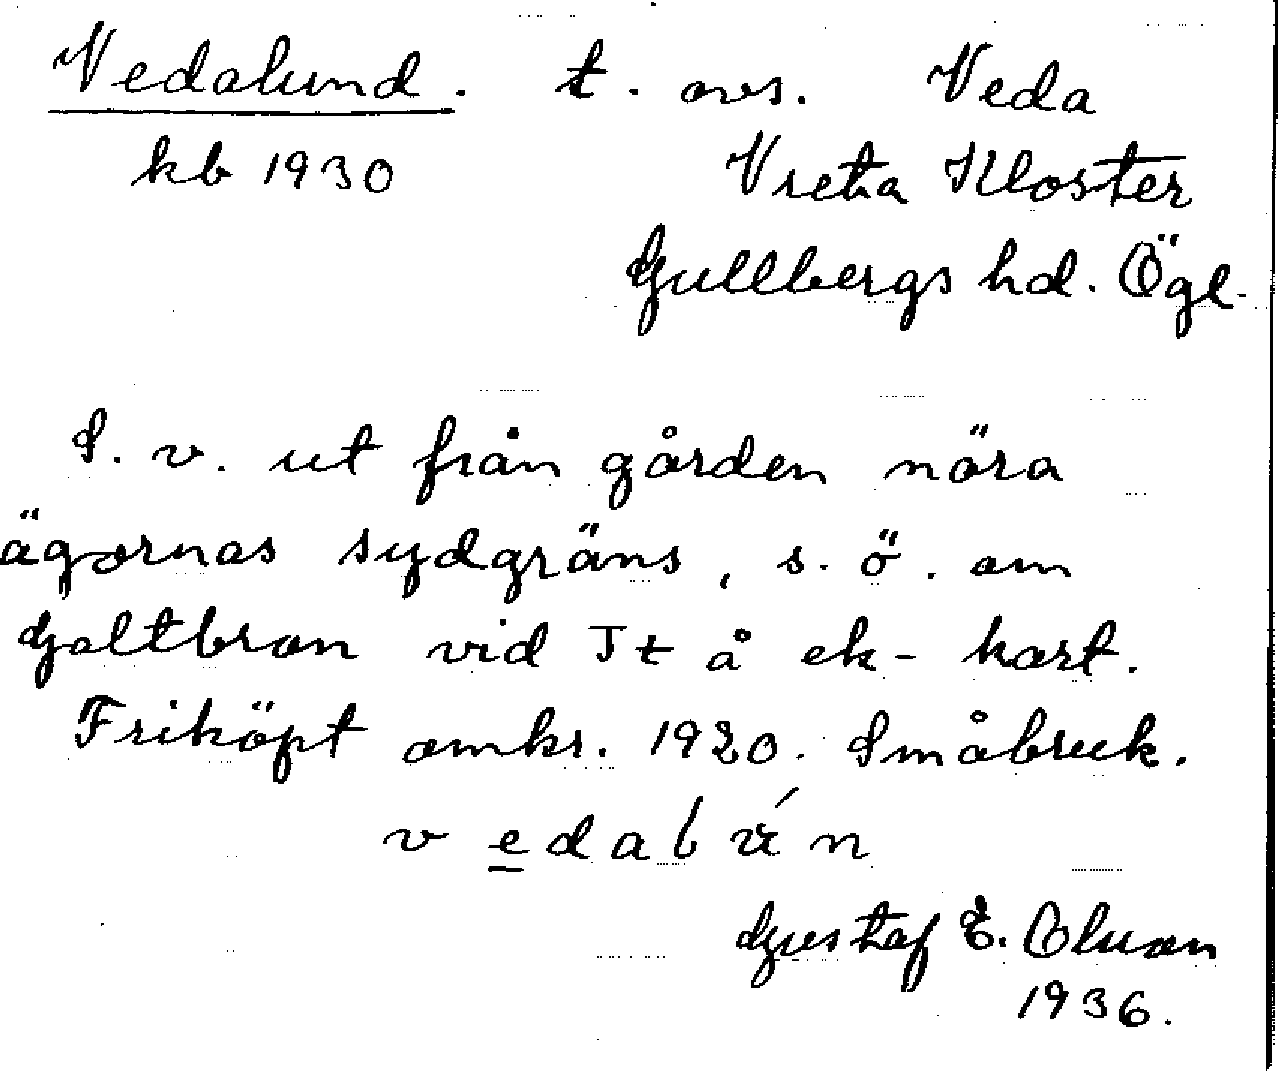 Vedalund. t. avs. Veda
kb 1930 Vreta Kloster
Gullbergs hd. Ögl.
S. v. ut från gården nära
ägornas sydgräns, s. ö. om
Galtbron vid Jt å ek-kart.
Friköpt omkr. 1920. Småbruk.
vedalún
Gustaf E. Olsson
1936.